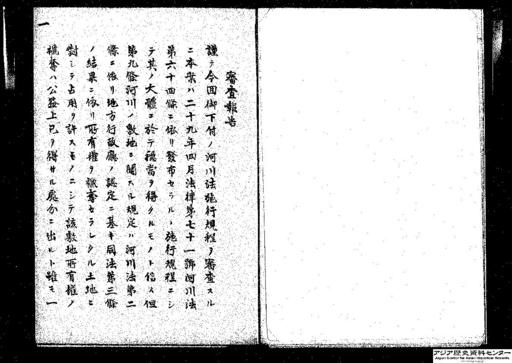 審査報告
謹テ今回御下付ノ河川法施行規程ヲ審査スル
ニ本案ハ二十九年四月法律第七十一號河川法
第六十四條ニ依リ發布セラルヽ施行規程ニシ
テ其ノ大體ニ於テ穩當ヲ得タルモノト信ス但
第九條河川ノ敷地ニ關スル規定ハ河川法第二
條ニ依リ地方行政廳ノ認定ニ基キ同法第三條
ノ結果ニ依リ所有權ヲ褫奪セラレタル土地ニ
對シテ占用ヲ許スモノニシテ該敷地所有權ノ
褫奪ハ公益上已ヲ得サル處分ニ出ヒト雖モ一
一
アジア歴史資料センター
Japan Center for Asian Historical Records